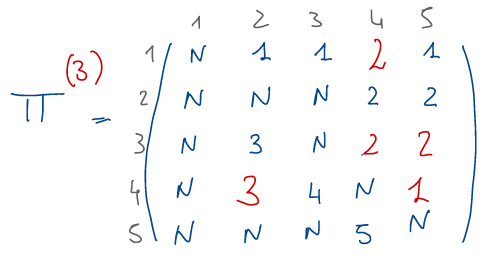 1 2 3 4 5
1 N 1 1 2 1
2 N N N 2 2
Π(3) = 3 N 3 N 2 2
4 N 3 4 N 1
5 N N N 5 N